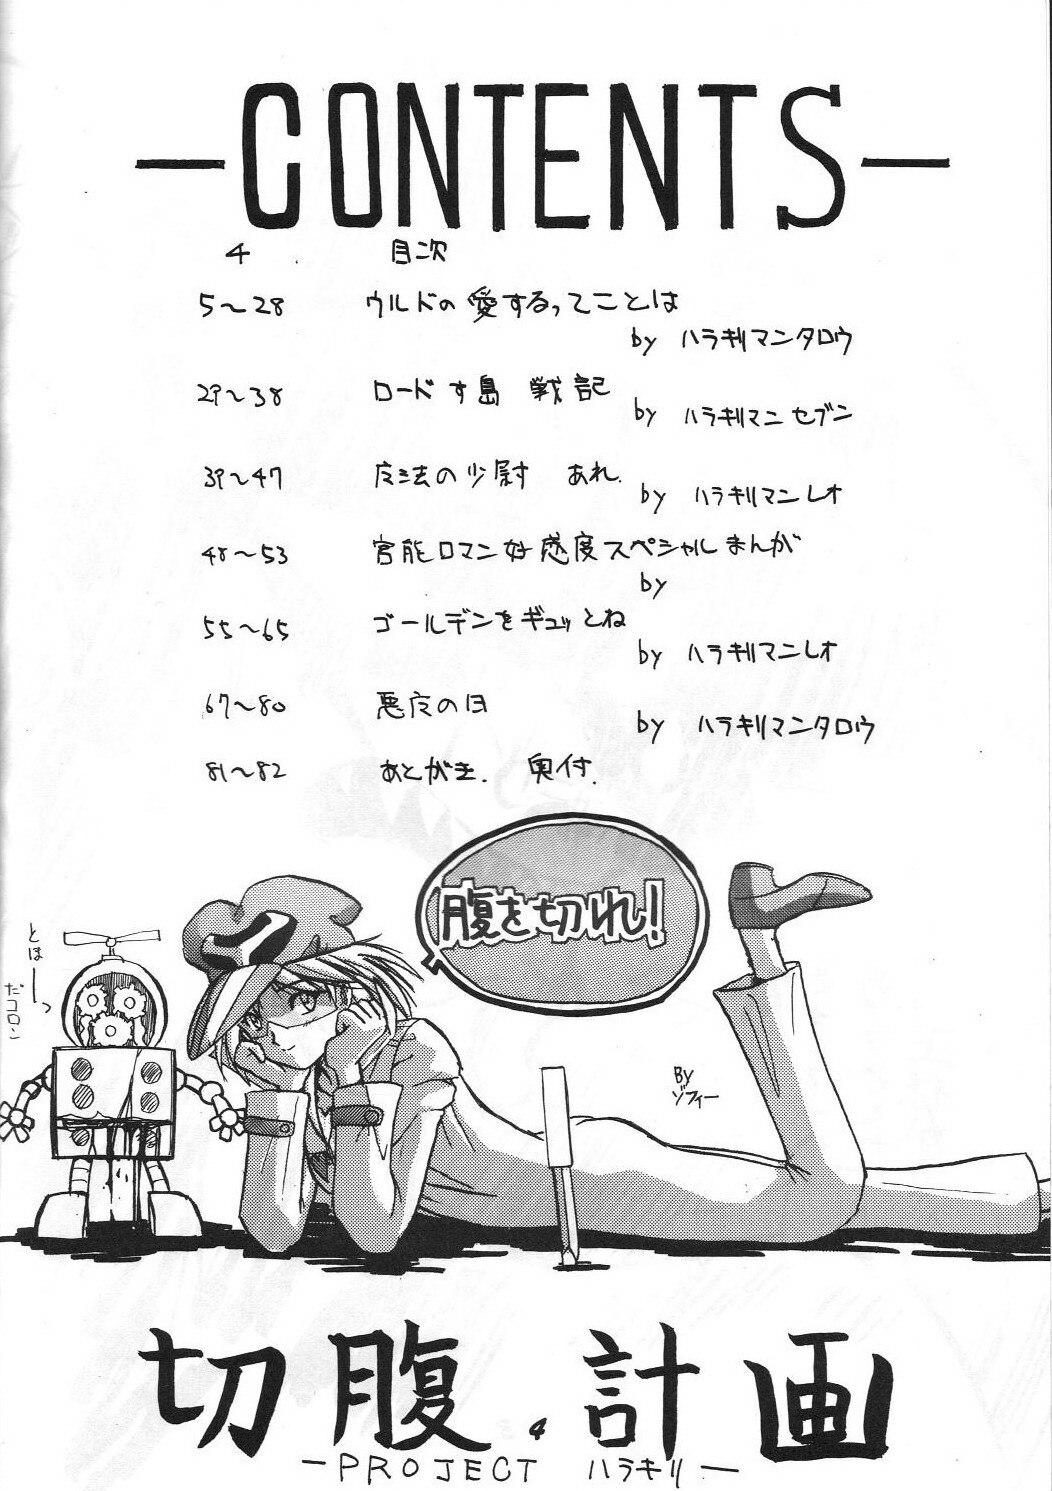 —CONTENTS—
4 目次
5〜28 ウルドの愛するってことは
by ハラキリマンタロウ
29〜38 ロードす島 戦記
by ハラキリマンセブン
39〜47 广法の少尉 あれ.
by ハラキリマンレオ
48〜53 官能ロマン好感度スペシャルまんが
by
55〜65 ゴールデンをギュッとね
by ハラキリマンレオ
67〜80 悪广の日
by ハラキリマンタロウ
81〜82 あとがき. 奥付.
腹を切れ!
とほーっ
だコロン
BY
ゾフィー
切腹.計画
4
—PROJECT ハラキリ—